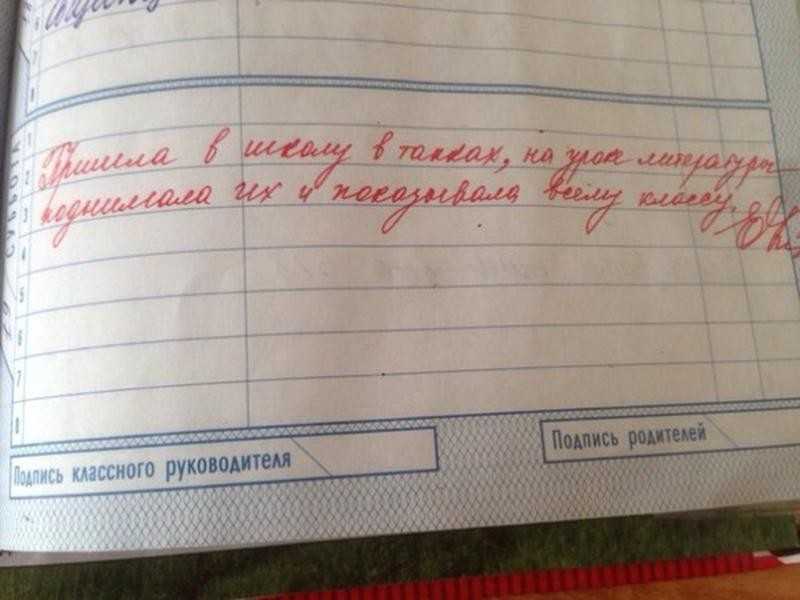 6
7
8
СУББОТА
1
2
3
4
5
6
7
8
Пришла в школу в тапках, на уроке литературы
поднимала их и показывала всему классу.
Подпись классного руководителя
Подпись родителей